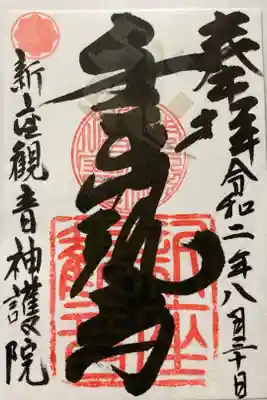 奉拝 令和二年八月三十日
観音
新座観音神護院
新座
観音